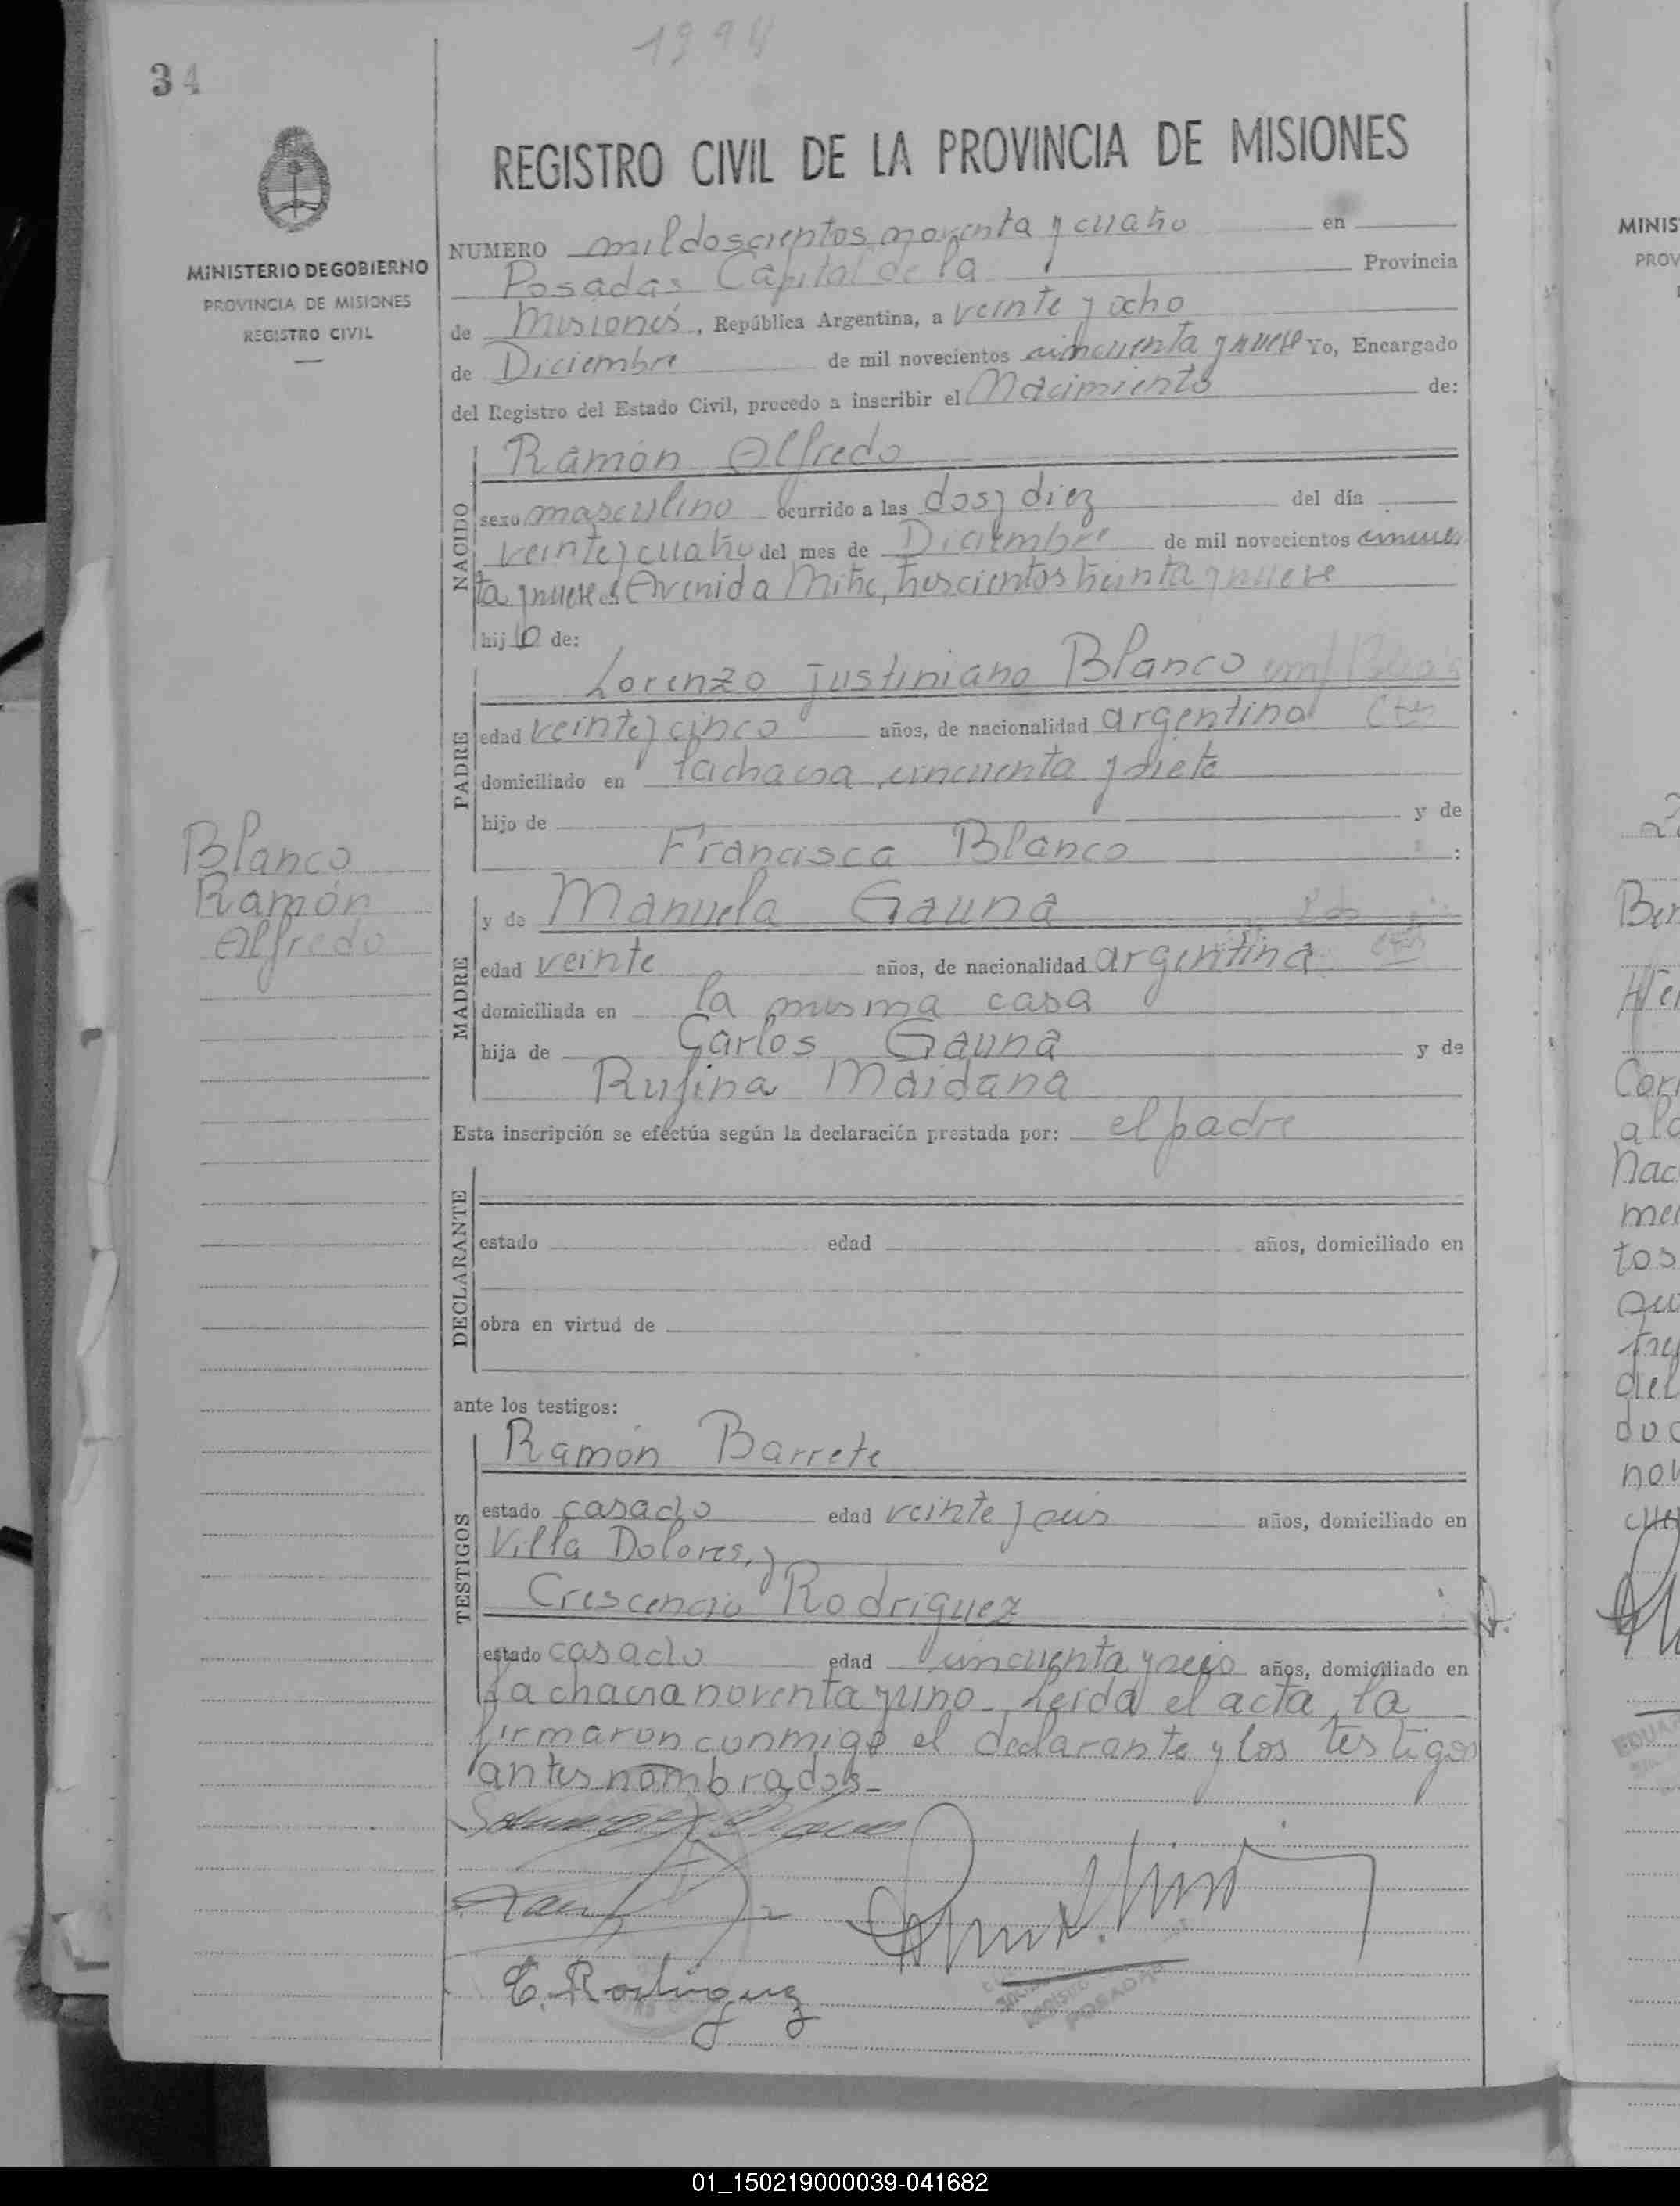 34
REGISTRO CIVIL DE LA PROVINCIA DE MISIONES
MINISTERIO DE GOBIERNO
PROVINCIA DE MISIONES
REGISTRO CIVIL
NUMERO mil doscientos noventa y cuatro en
Posadas Capital de la Provincia
de Misiones, República Argentina, a veinte y ocho
de Diciembre de mil novecientos cincuenta y nueve Yo, Encargado
del Registro del Estado Civil, procedo a inscribir el Nacimiento de:
NACIDO
Ramón Alfredo
sexo masculino ocurrido a las dos y diez del día
veinte y cuatro del mes de Diciembre de mil novecientos cincuen
ta y nueve en Avenida Mitre, trescientos treinta y nueve
hijo de:
PADRE
Lorenzo Justiniano Blanco
edad veinte y cinco años, de nacionalidad argentino Ctes
domiciliado en la chacra cincuenta y siete
hijo de y de
Francisca Blanco
Blanco
Ramón
Alfredo
MADRE
y de Manuela Gauna
edad veinte años, de nacionalidad argentina
domiciliada en la misma casa
hija de Carlos Gauna y de
Rufina Maidana
Esta inscripción se efectúa según la declaración prestada por: el padre
DECLARANTE
estado edad años, domiciliado en
obra en virtud de
ante los testigos:
TESTIGOS
Ramón Barrete
estado casado edad veinte y seis años, domiciliado en
Villa Dolores, y
Crescencio Rodriguez
estado casado edad cincuenta y seis años, domiciliado en
La chacra noventa y uno. Leida el acta, la
firmaron conmigo el declarante y los testigos
antes nombrados.-
C. Rodriguez
POSADAS
MINIS
PROV
01_150219000039-041682